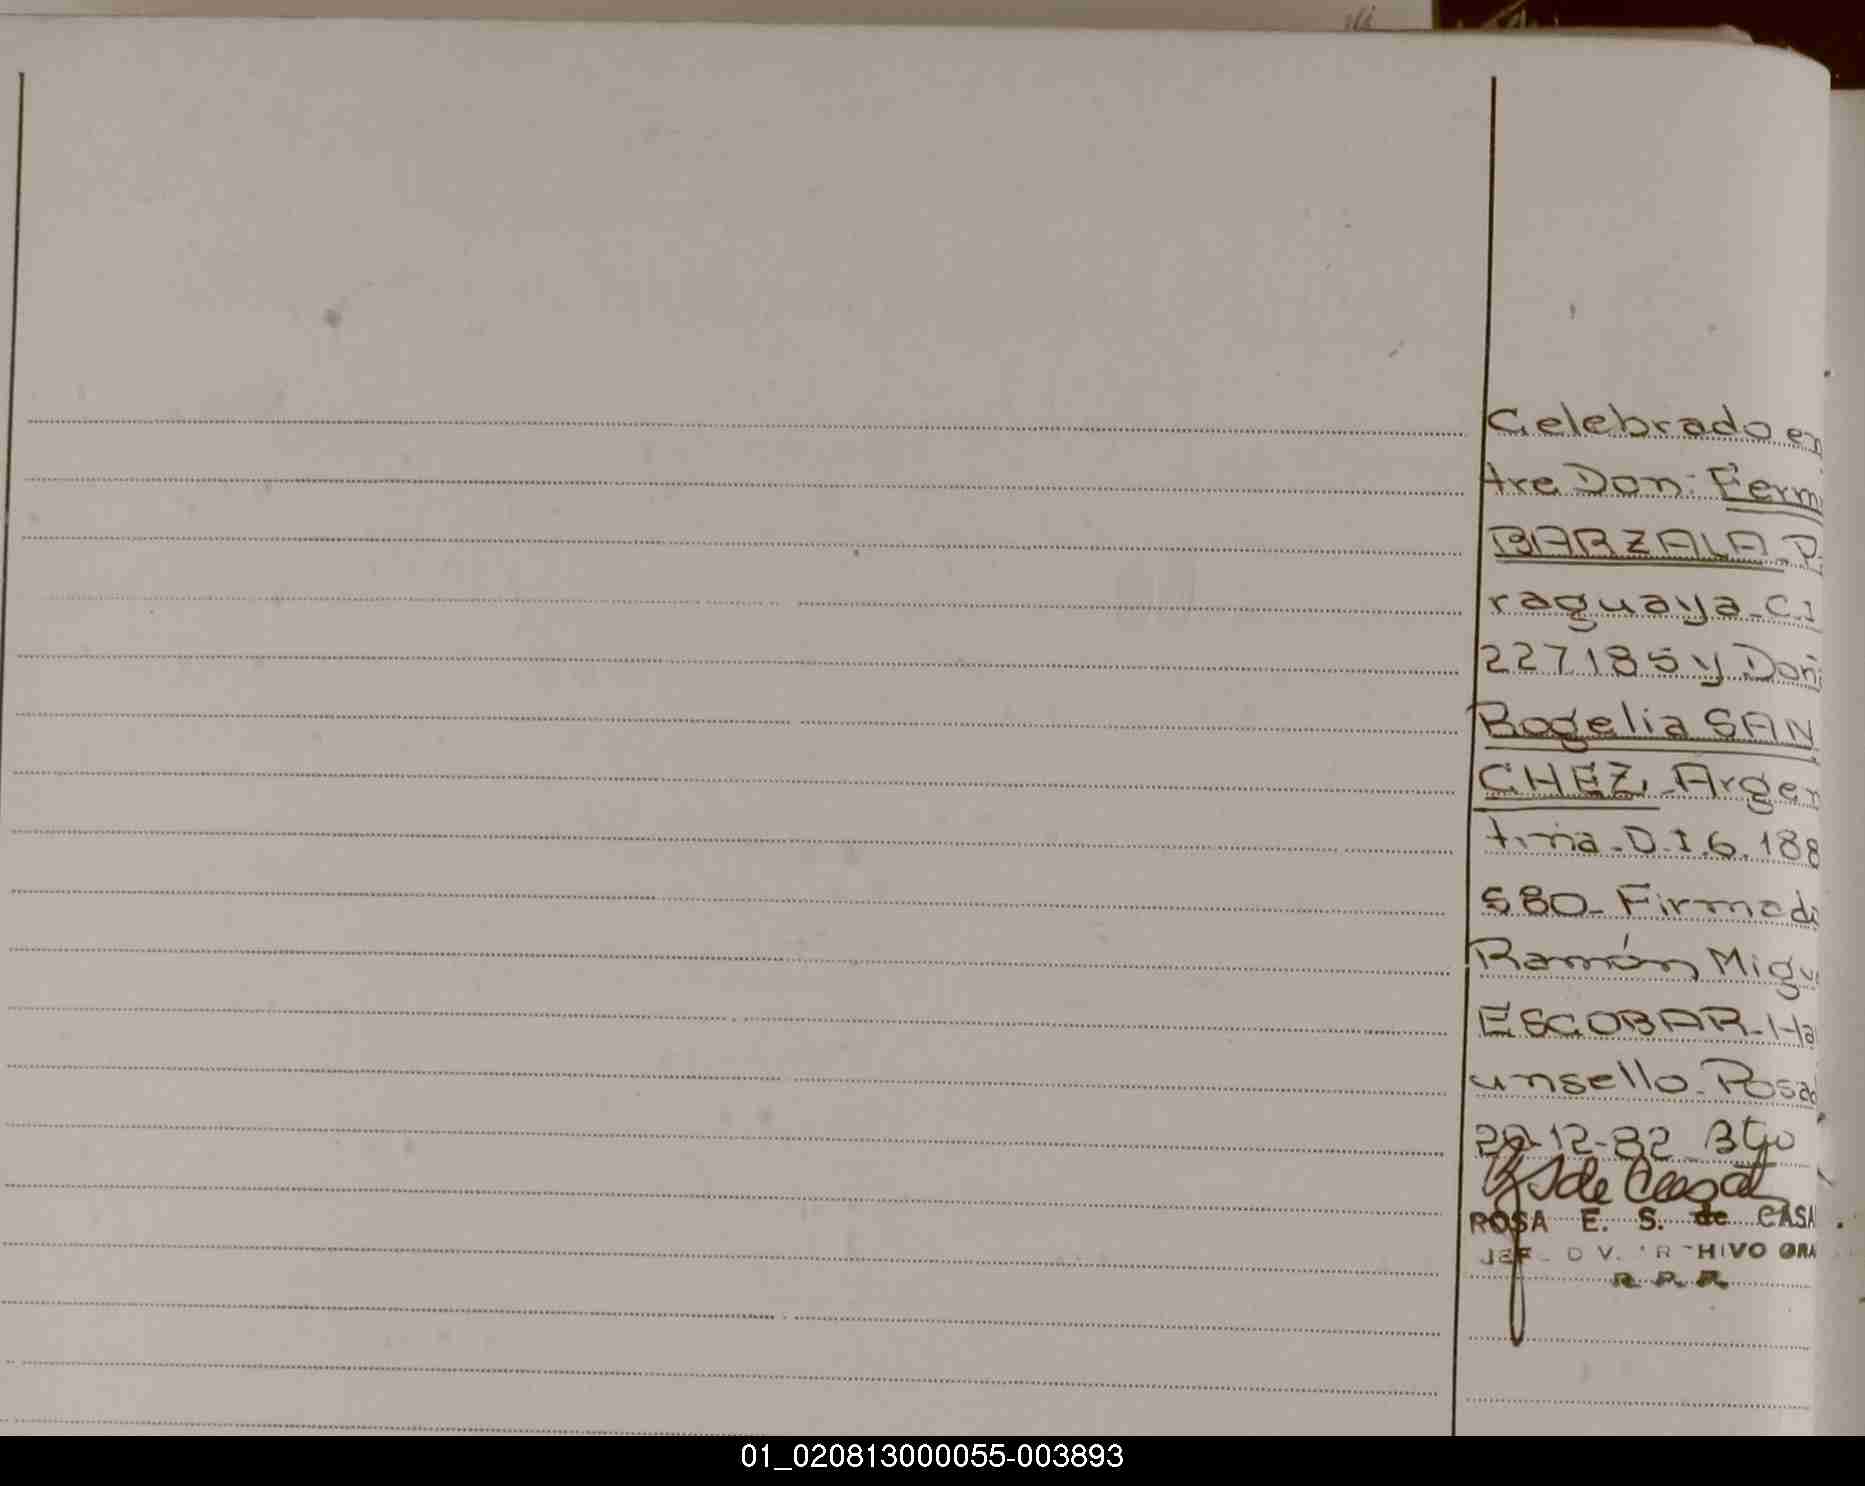 Celebrado en
tre Don: Ferm
BARZALA P.
raguaya-C.I
227.185 y Doñ
Rogelia SAN
CHEZ,-Argen
tina-D.I.6.188
580-Firmad
Ramón Migu
ESCOBAR-Ha
unsello-Posad
29-12-82
ROSA E. S. de CASA
HIVO GRA
R. P. R
01_020813000055-003893